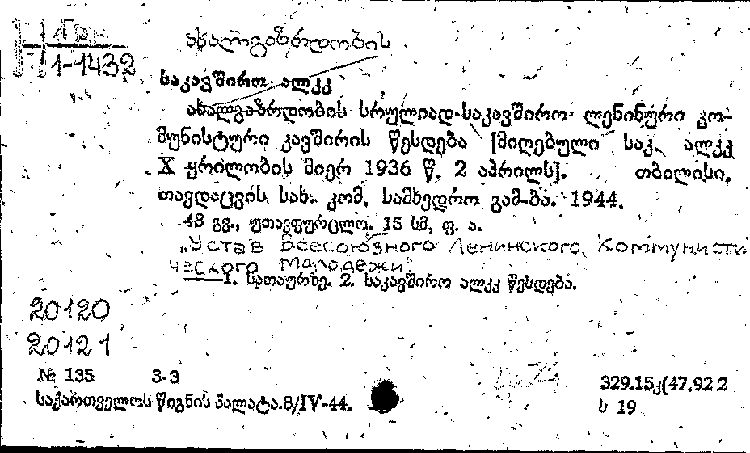 1-1432
ახალგაზრდობის
საკავშირო ალკკ
ახალგაზრდობის სრულიად-საკავშირო ლენინური კო-
მუნისტური კავშირის წესდება [მიღებული საკ. ალკკ
X ყრილობის მიერ 1936 წ. 2 აპრილს]. თბილისი,
თავდაცვის სახ. კომ. სამხედრო გამ-ბა. 1944.
48 გვ., უთავფურცლო. 15 სმ, ფ. ა.
„Устав Всесоюзного Ленинского Коммунисти
ческого молодежи"
1. სათაურზე. 2. საკავშირო ალკკ წესდება.
20120
20121
№ 135 3-3
საქართველოს წიგნის პალატა.8/IV-44.
329.15კ(47.922
ს 19